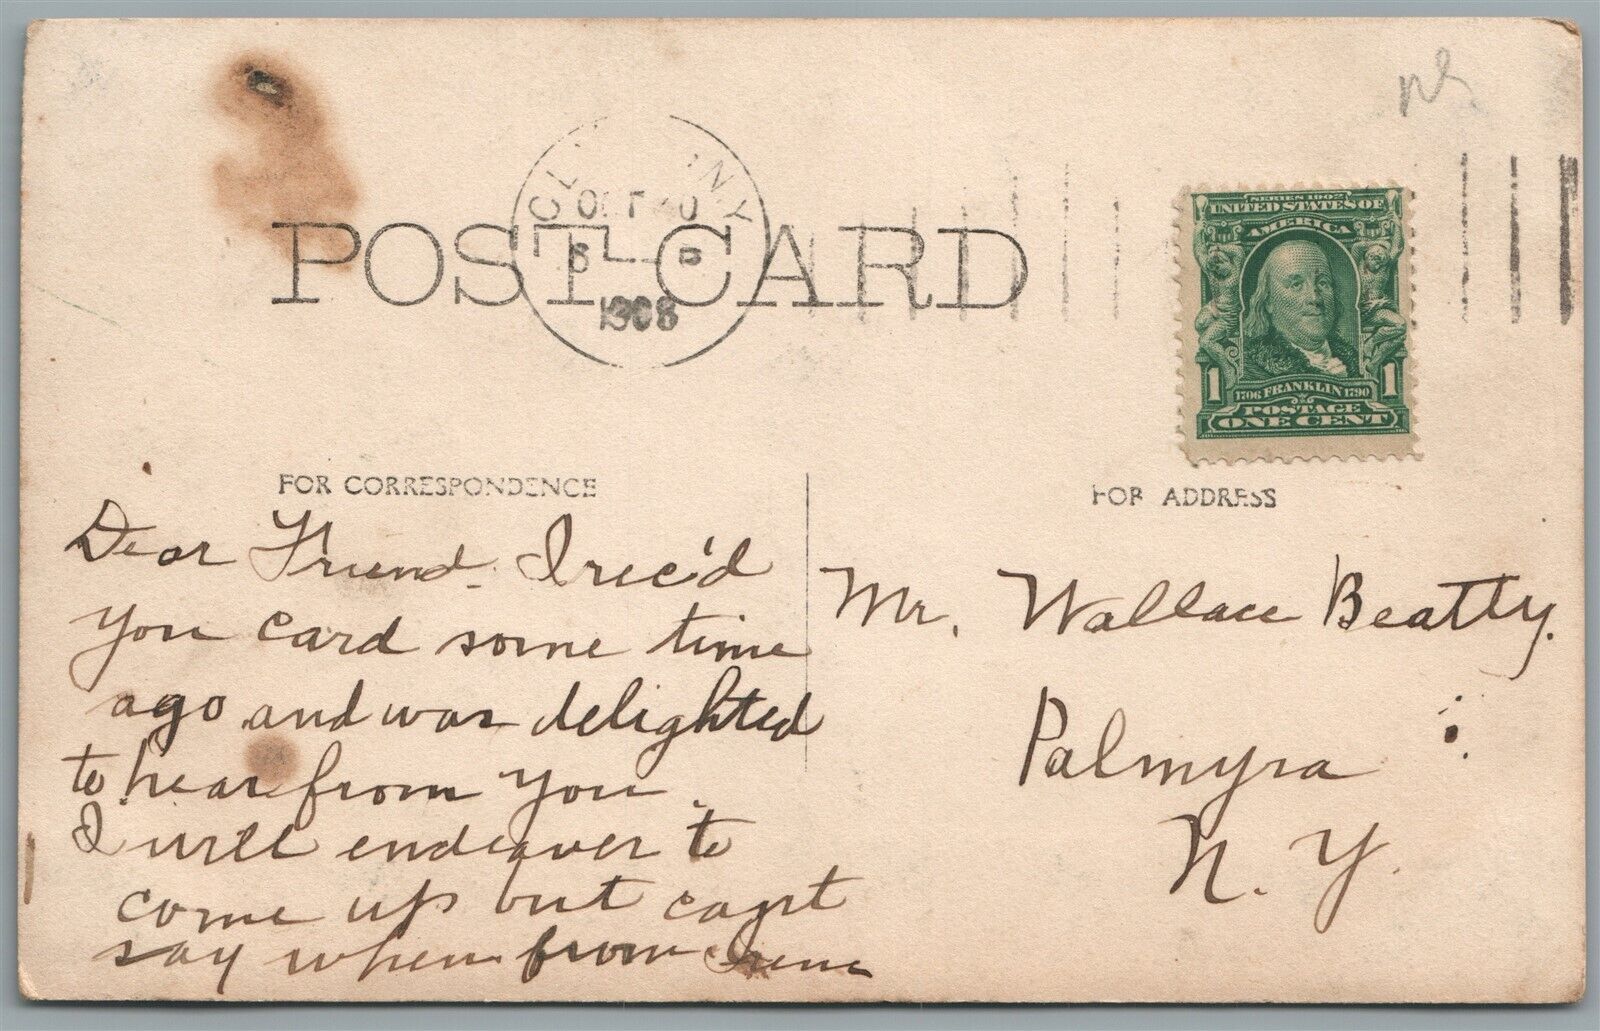 POST CARD
1908
SERIES 1902
UNITED STATES OF
AMERICA
1 1
1706 FRANKLIN 1790
POSTAGE
ONE CENT
FOR CORRESPONDENCE
FOR ADDRESS
Dear Friend. I rec'd
you card some time
ago and was delighted
to hear from you.
I will endeaver to
come up but
say when from Irene
Mr. Wallace Beatty.
Palmyra
N. Y.